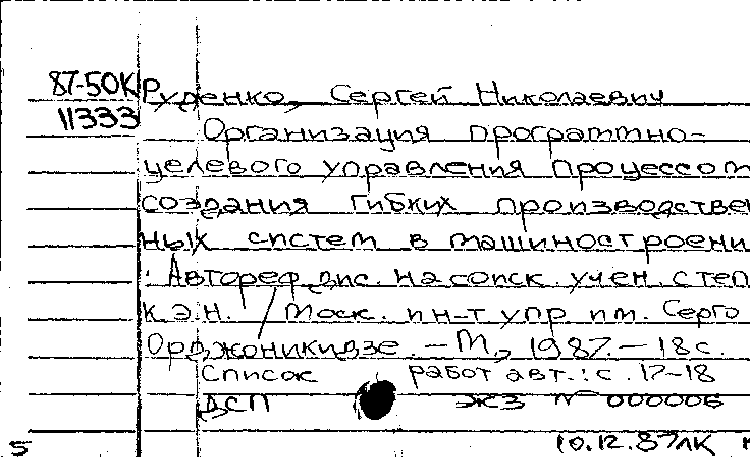 87-50К Руденко, Сергей Николаевич
11333 Организация программно-
целевого управления процессом
создания гибких производствен
ных систем в машиностроени
: Автореф. дис. на соиск. учен. степ
к.э.н. / Моск. ин-т упр. им. Серго
Орджоникидзе. – М., 1987. – 18 с.
Список работ авт.: с. 17-18
ДСП экз № 000006
5 10.12.87 ЛК